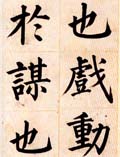 也戲動
於謀也